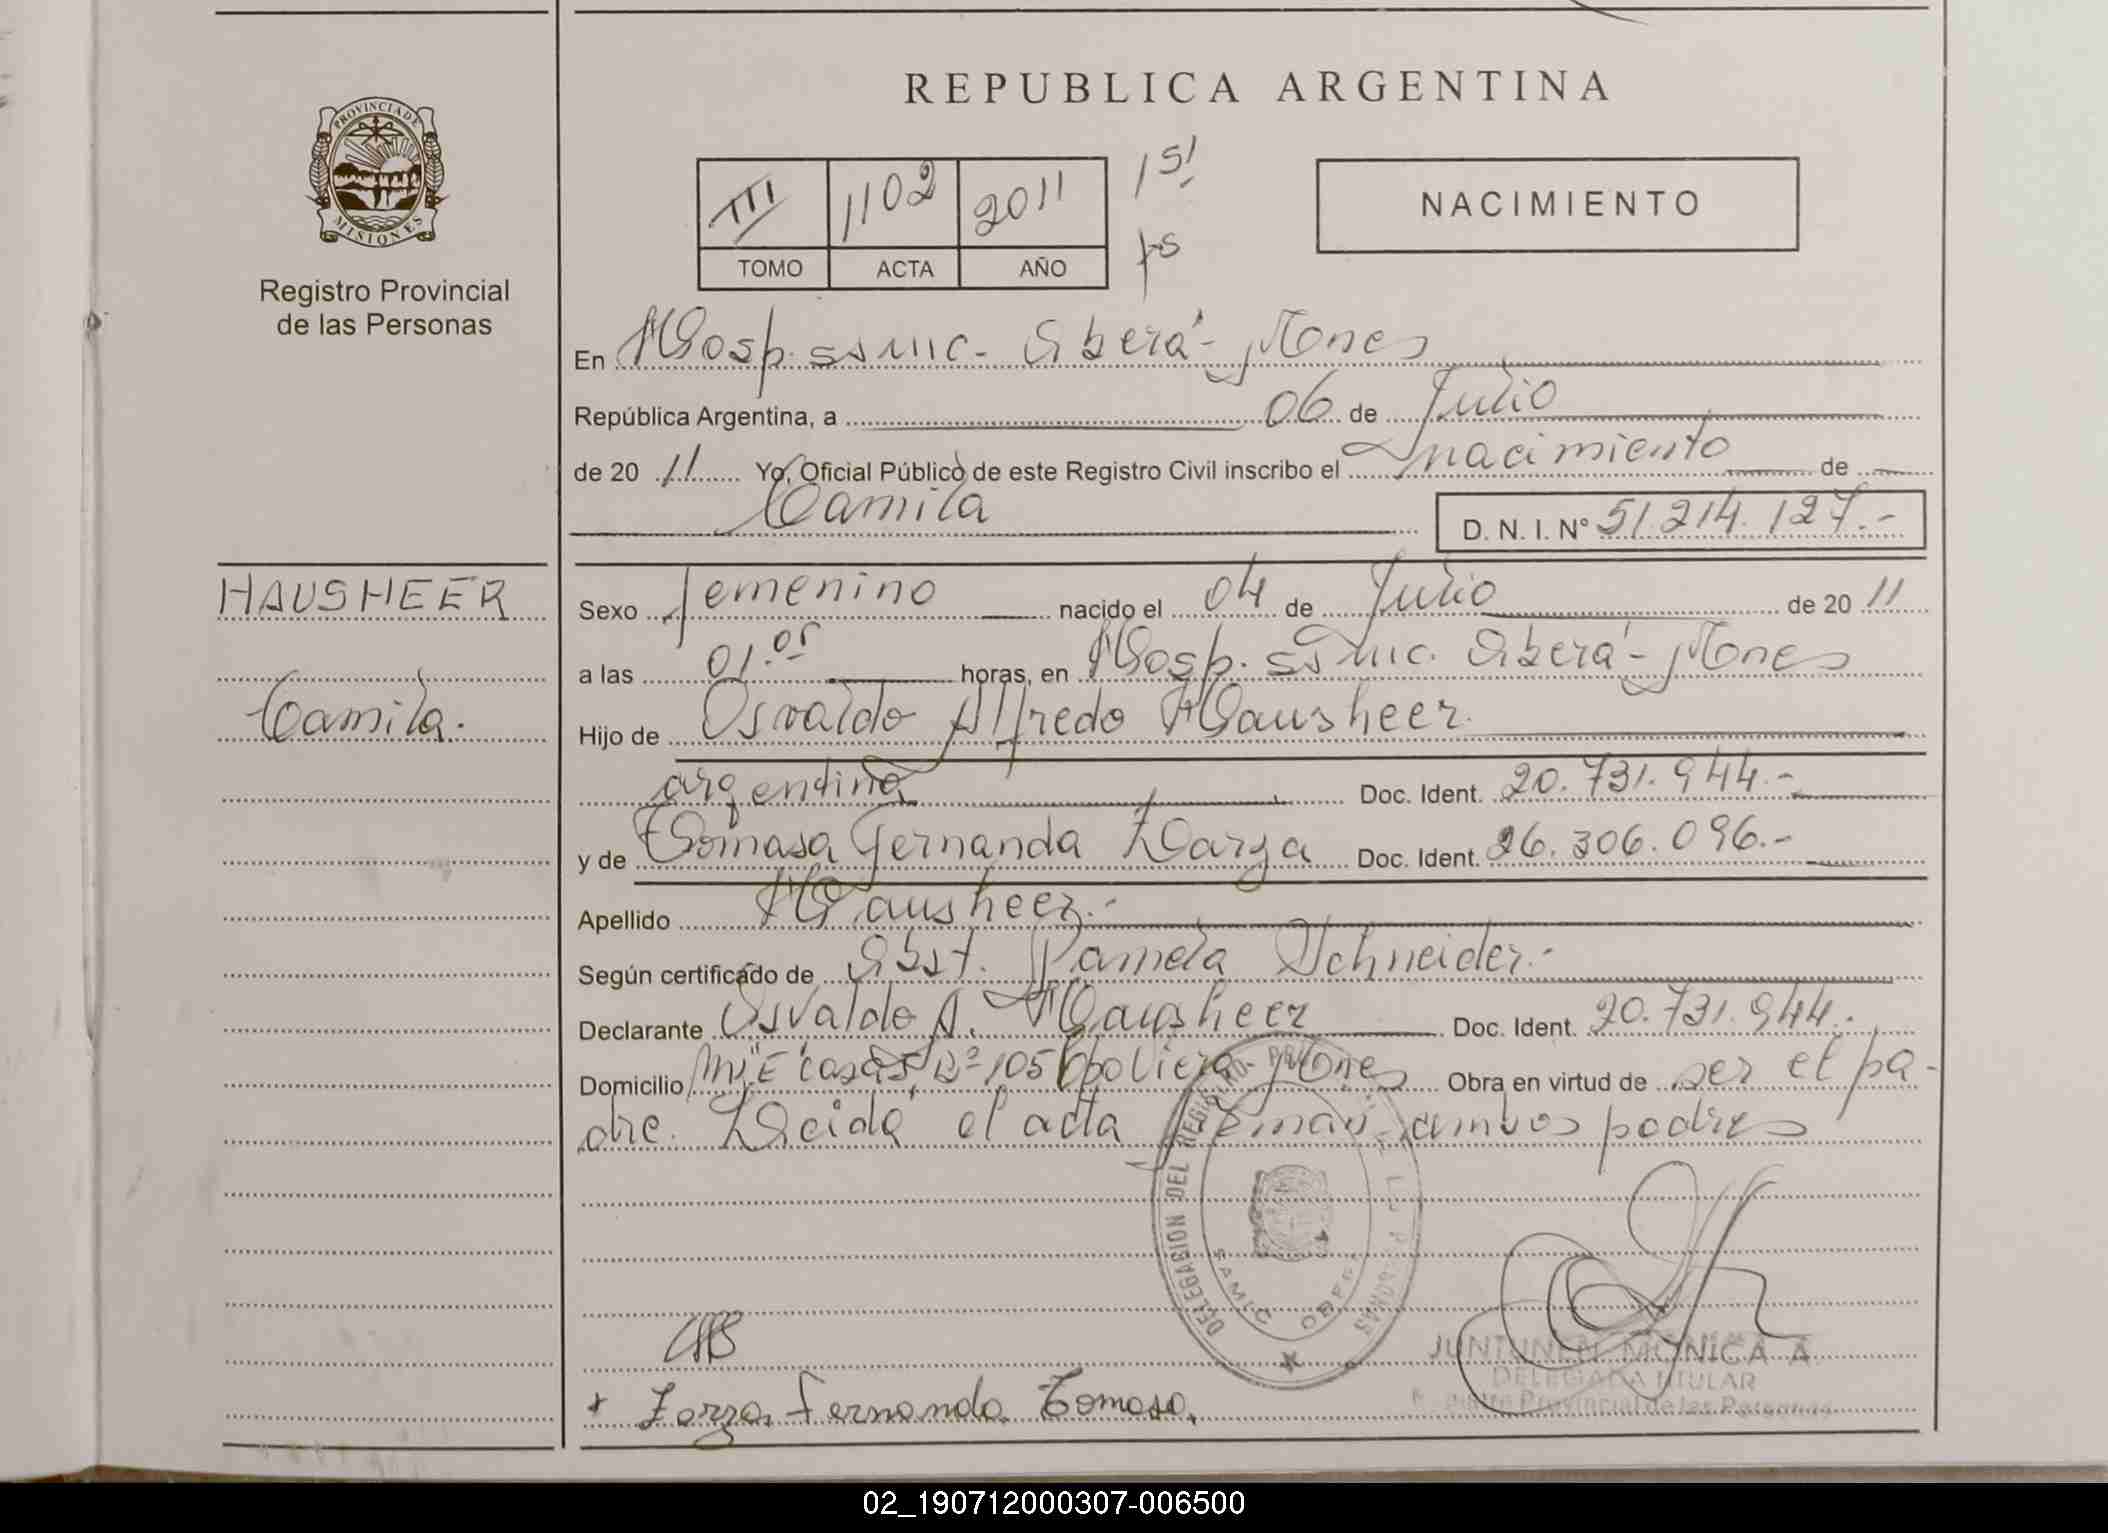 REPUBLICA ARGENTINA
PROVINCIA DE
MISIONES
Registro Provincial
de las Personas
III 1102 2011
TOMO ACTA AÑO
NACIMIENTO
En Hosp. SSMIC. Oberá - Mones
República Argentina, a 06 de Julio
de 20 11 Yo, Oficial Público de este Registro Civil inscribo el nacimiento de
Camila
D. N. I. N° 51.214.127.-
HAUSHEER
Camila.
Sexo femenino nacido el 04 de Julio de 20 11
a las 01.05 horas, en Hosp. SSMIC. Oberá - Mones
Hijo de Osvaldo Alfredo Hausheer.
argentina Doc. Ident. 20.731.944.-
y de Tomasa Fernanda Zarza Doc. Ident. 26.306.096.-
Apellido Hausheer.-
Según certificado de Obst. Pamela Schneider.-
Declarante Osvaldo A. Hausheer Doc. Ident. 20.731.944.-
Domicilio "E" casa 105 Mones Obra en virtud de ser el pa-
dre. Leída el acta firman ambos padres
DELEGACION DEL REGISTRO
SAMIC OBERA
JUNTUNEN MONICA A
DELEGADA TITULAR
Provincial de las Personas
+ Zarza Fernanda Tomasa.
02_190712000307-006500